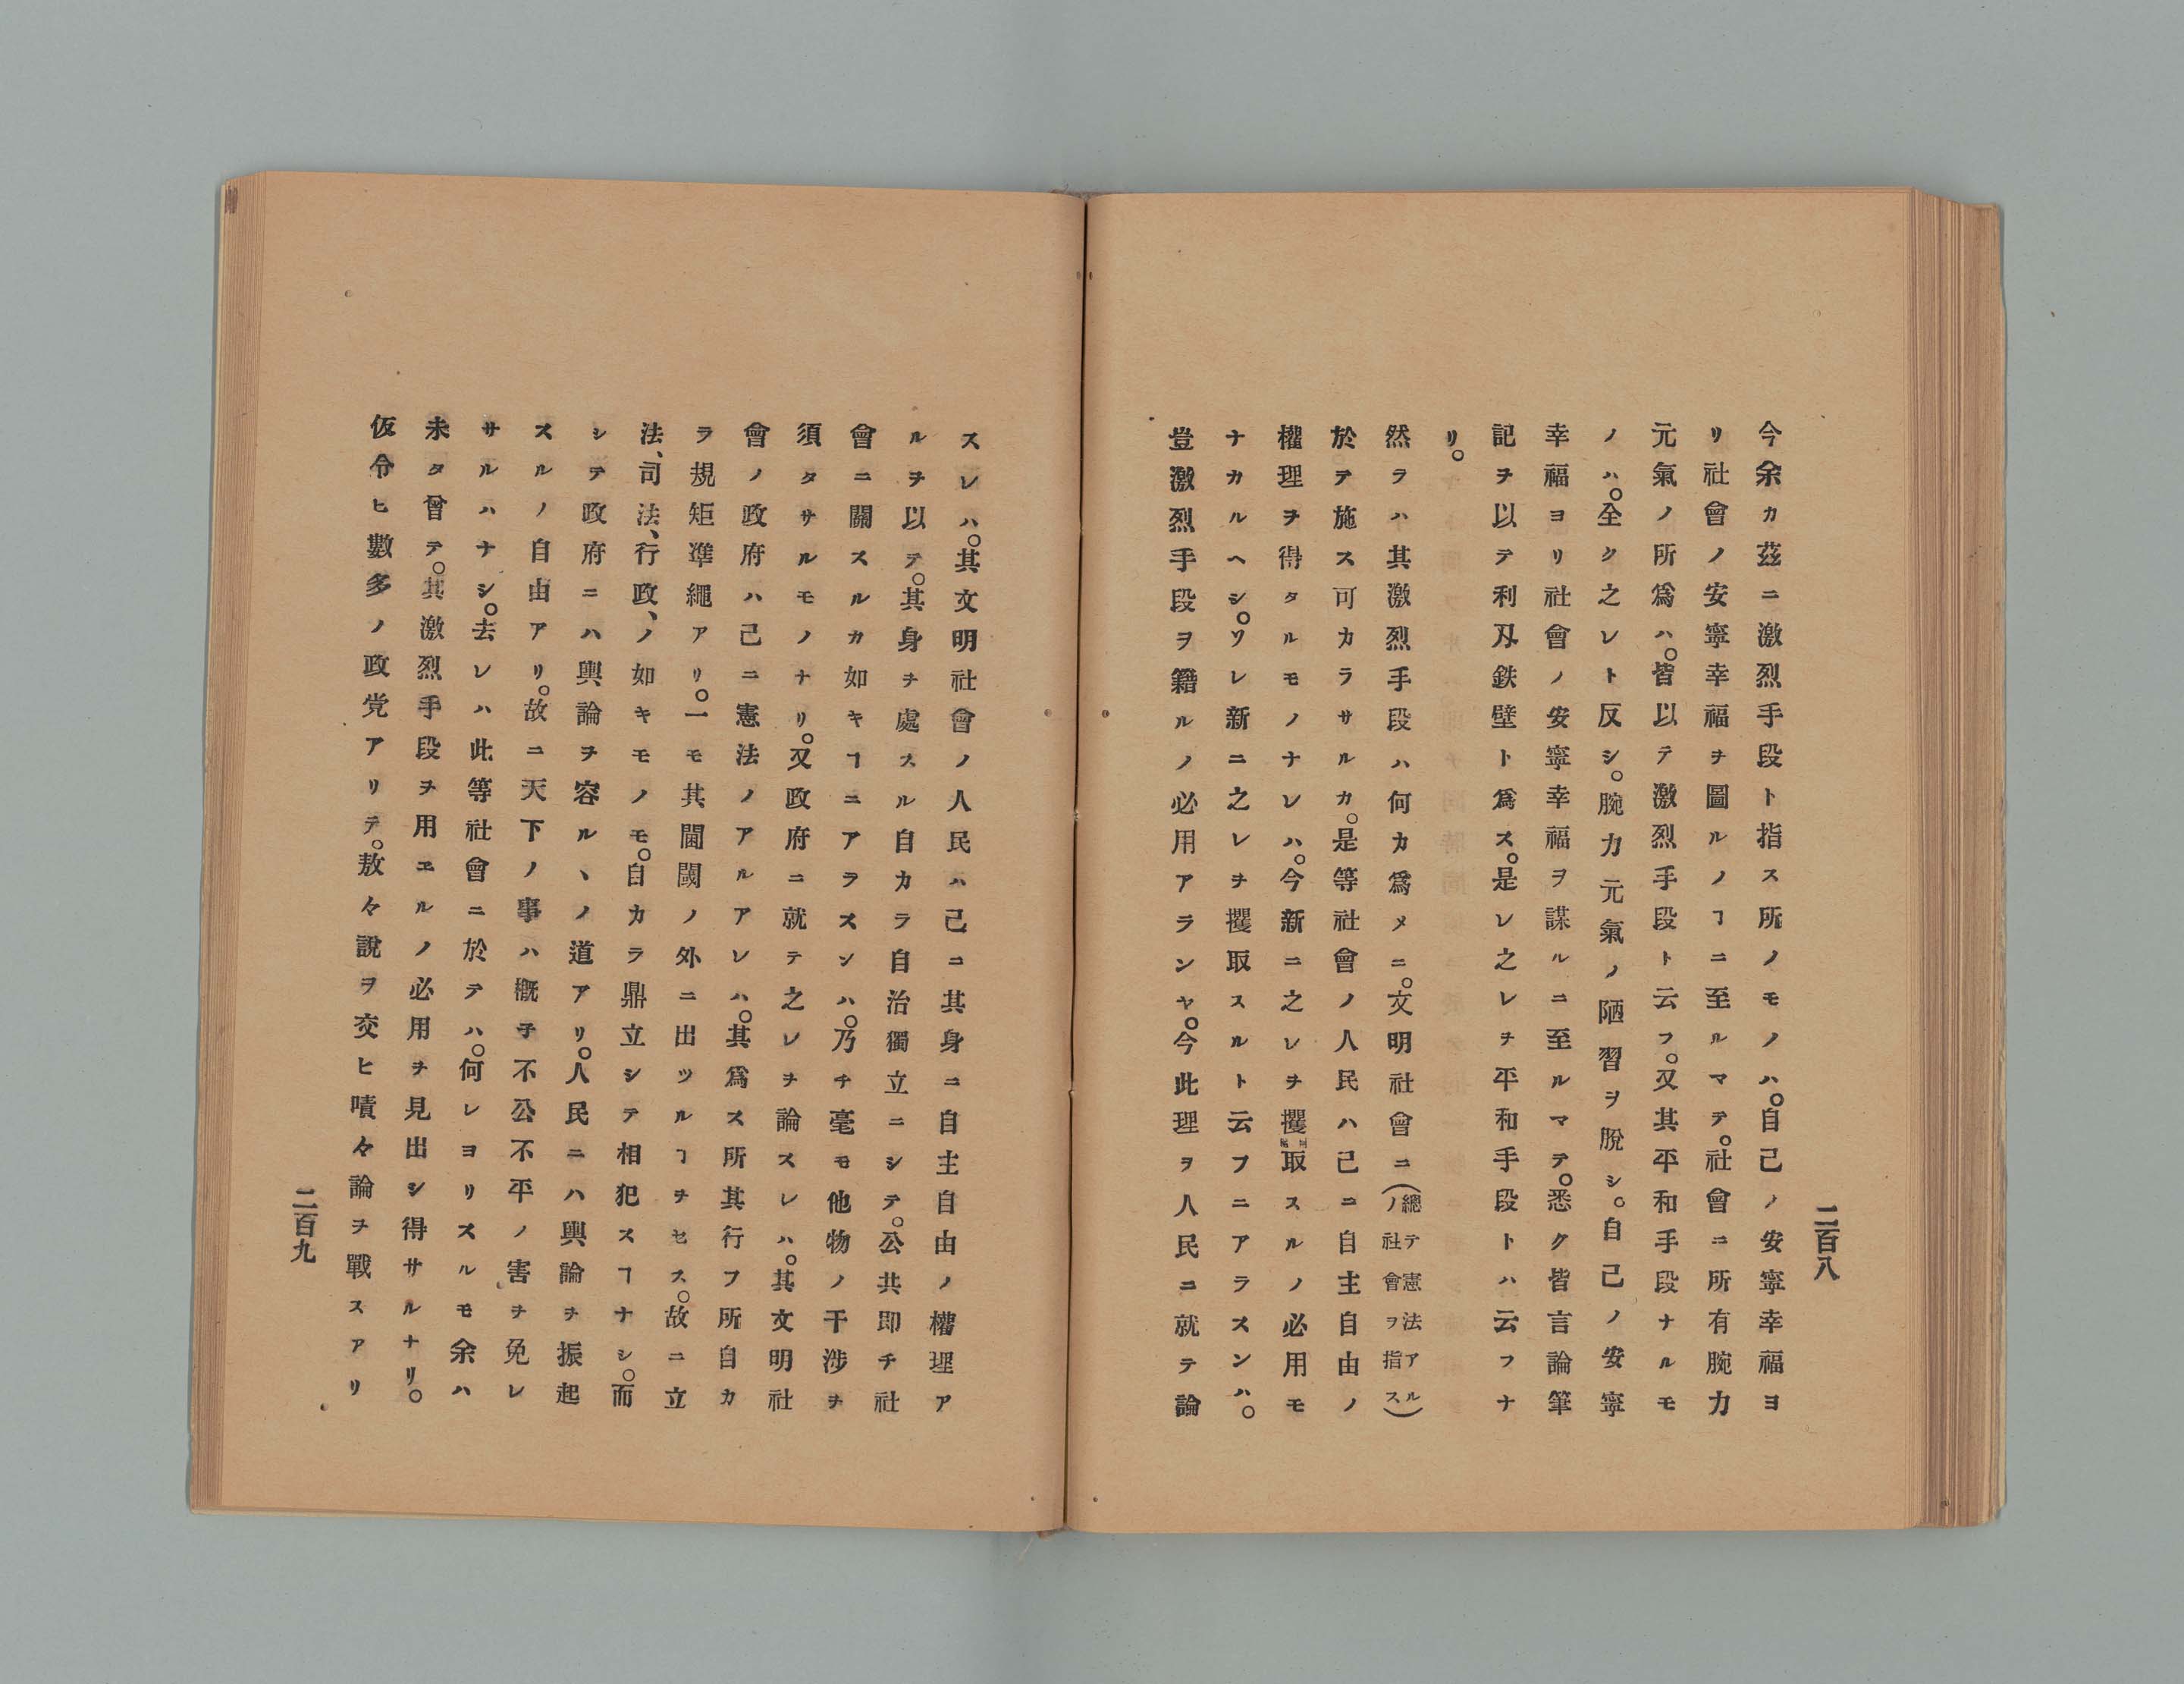 二百八
今余カ茲ニ激烈手段ト指ス所ノモノハ。自己ノ安寧幸福ヨ
リ社會ノ安寧幸福ヲ圖ルノヿニ至ルマテ。社會ニ所有腕力
元氣ノ所爲ハ。皆以テ激烈手段ト云フ。又其平和手段ナルモ
ノハ。全ク之レト反シ。腕力元氣ノ陋習ヲ脫シ。自己ノ安寧
幸福ヨリ社會ノ安寧幸福ヲ謀ルニ至ルマテ。悉ク皆言論筆
記ヲ以テ利刄鉄壁ト爲ス。是レ之レヲ平和手段トハ云フナ
リ。
然ラハ其激烈手段ハ何カ爲メニ。文明社會ニ(總テ憲法アルノ社會ヲ指ス)
於テ施ス可カラサルカ。是等社會ノ人民ハ己ニ自主自由ノ
權理ヲ得タルモノナレハ。今新ニ之レヲ攫取スルノ必用モ
ナカルヘシ。ソレ新ニ之レヲ攫取スルト云フニアラスンハ。
豈激烈手段ヲ籍ルノ必用アランヤ。今此理ヲ人民ニ就テ論
スレハ。其文明社會ノ人民ハ己ニ其身ニ自主自由ノ權理ア
ルヲ以テ。其身ヲ處スル自カラ自治獨立ニシテ。公共即チ社
會ニ關スルカ如キヿニアラスンハ。乃チ毫モ他物ノ干渉ヲ
須タサルモノナリ。又政府ニ就テ之レヲ論スレハ。其文明社
會ノ政府ハ己ニ憲法ノアルアレハ。其爲ス所其行フ所自カ
ラ規矩凖繩アリ。一モ其閫閾ノ外ニ出ツルヿヲセス。故ニ立
法、司法、行政、ノ如キモノモ。自カラ鼎立シテ相犯スヿナシ。而
シテ政府ニハ輿論ヲ容ルヽノ道アリ。人民ニハ輿論ヲ振起
スルノ自由アリ。故ニ天下ノ事ハ概子不公不平ノ害ヲ免レ
サルハナシ。去レハ此等社會ニ於テハ。何レヨリスルモ余ハ
未タ曾テ。其激烈手段ヲ用ヱルノ必用ヲ見出シ得サルナリ。
仮令ヒ數多ノ政党アリテ。敖々說ヲ交ヒ嘖々論ヲ戰スアリ
二百九